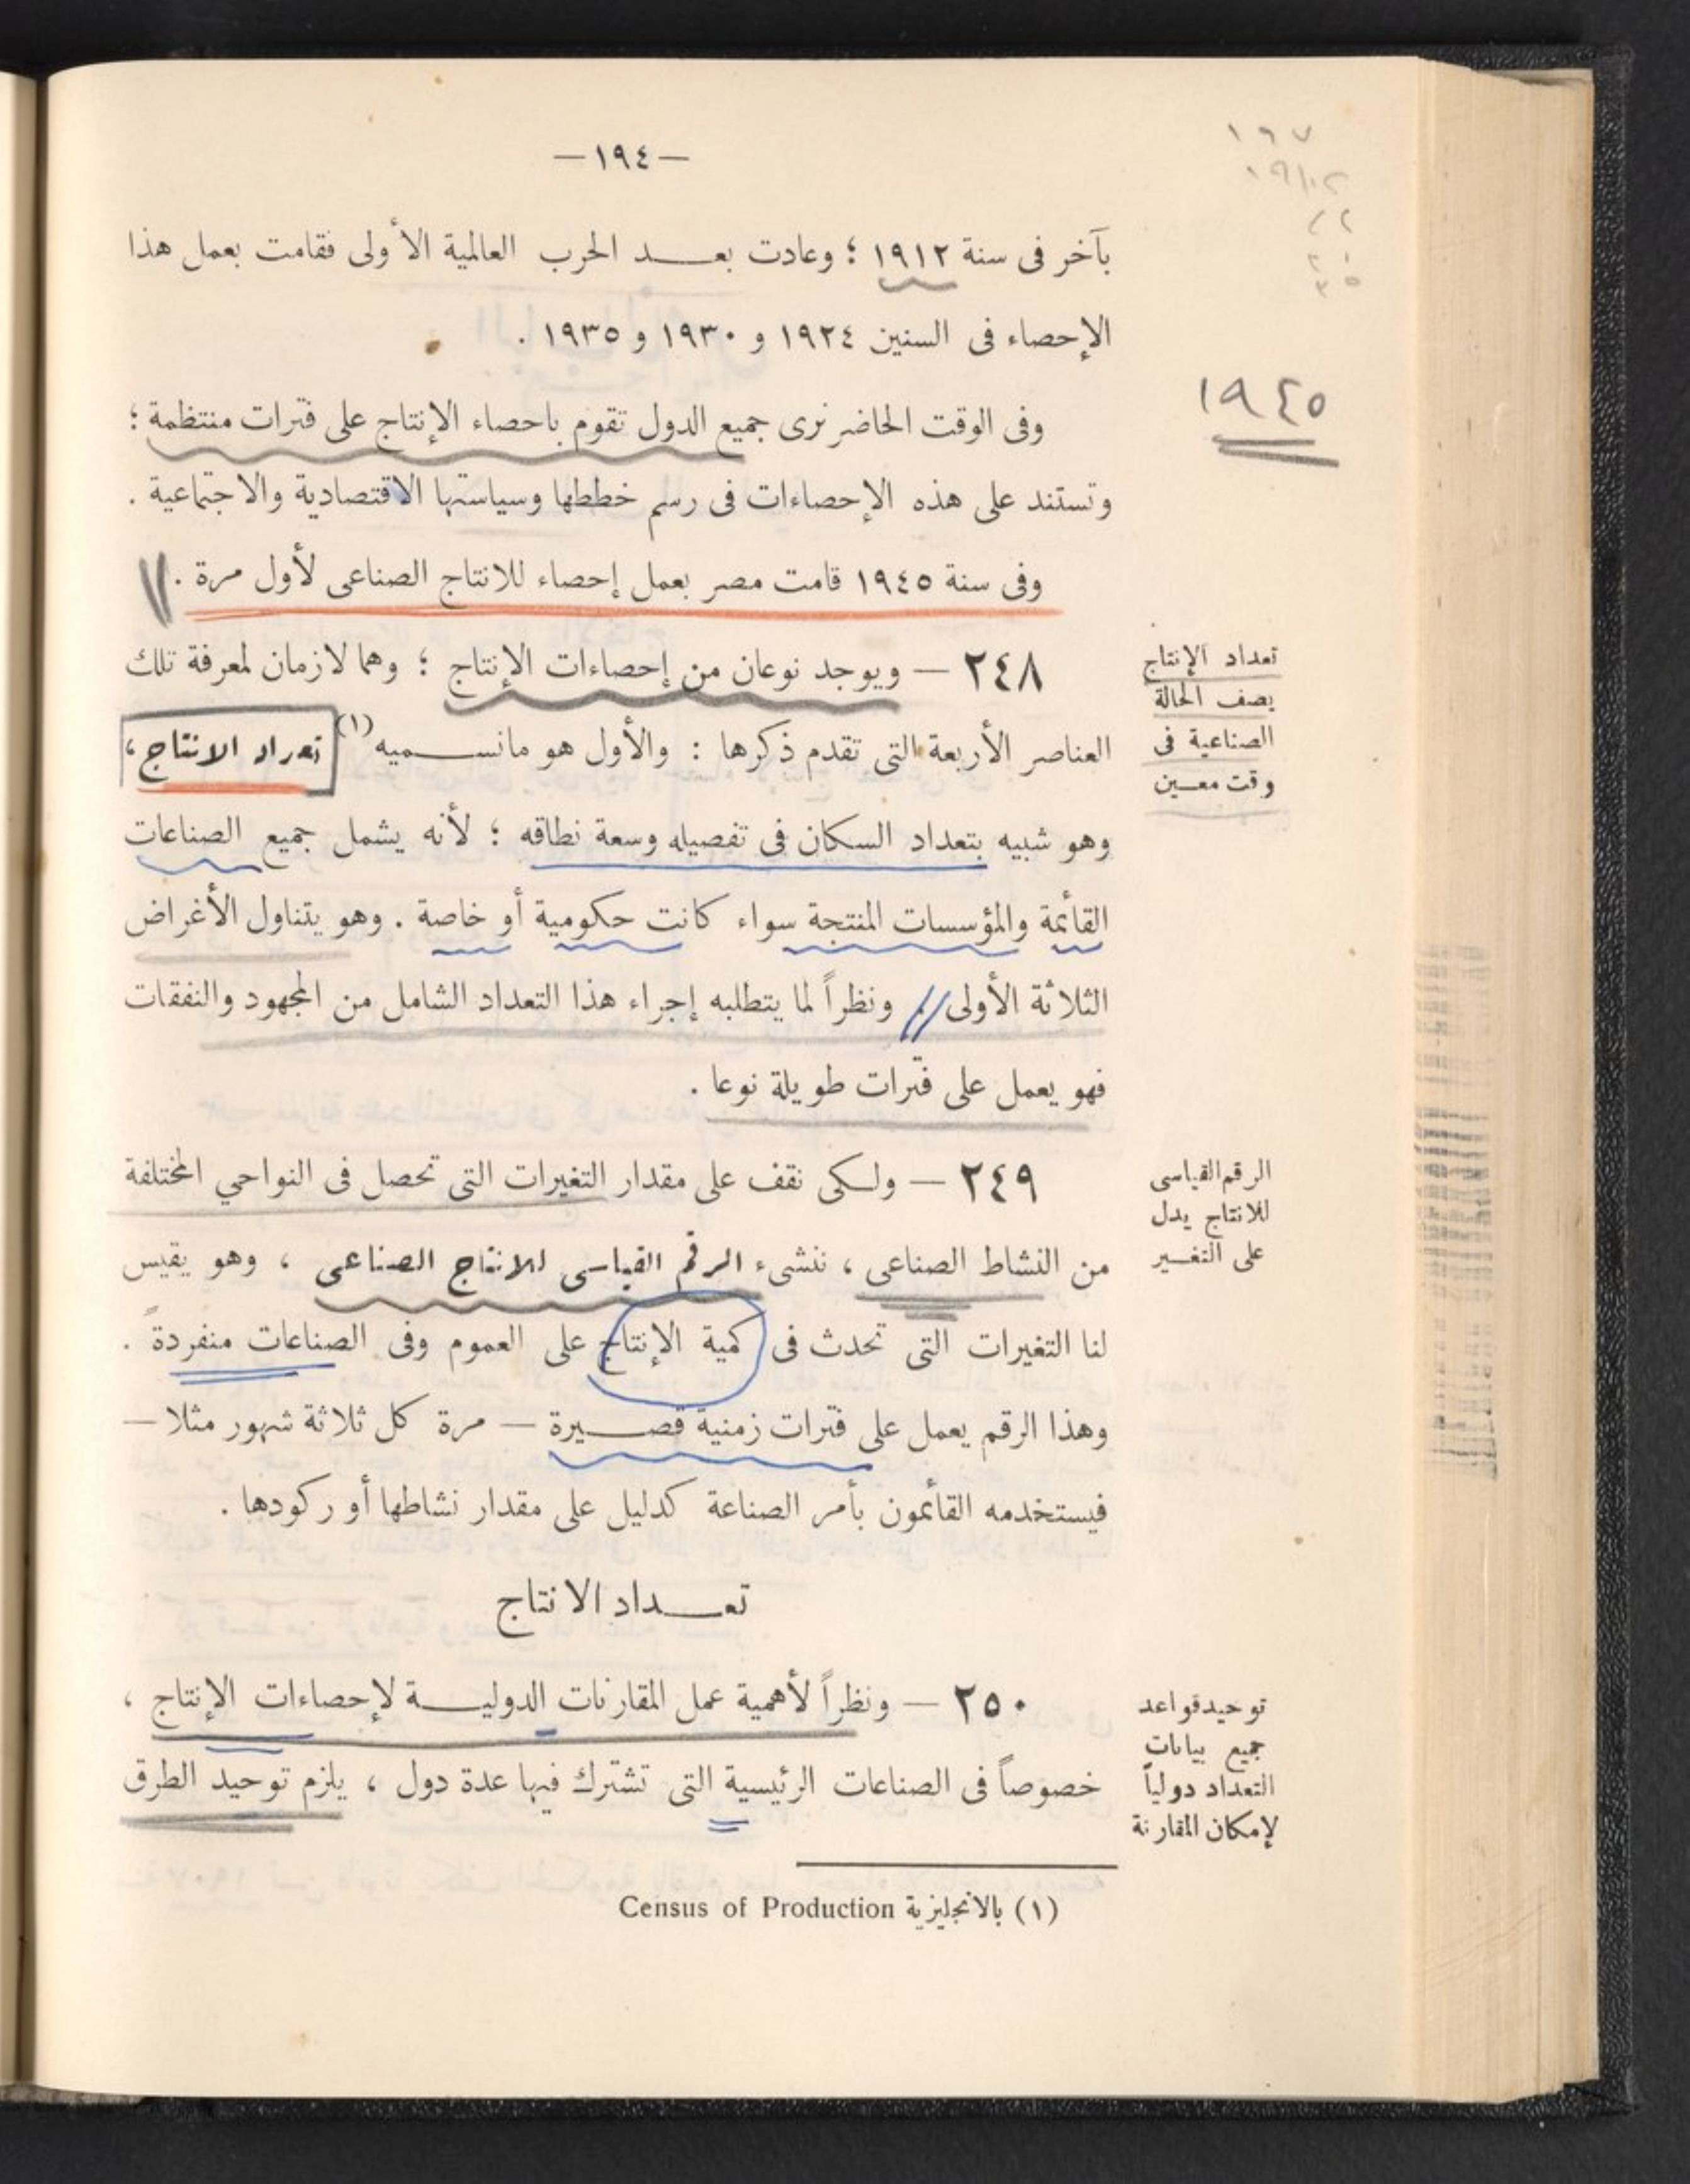 —١٩٤—
بآخر فى سنة ١٩١٢ ؛ وعادت بعــد الحرب العالمية الأولى فقامت بعمل هذا
الإحصاء فى السنين ١٩٢٤ و ١٩٣٠ و ١٩٣٥ .
١٩٤٥
وفى الوقت الحاضر نرى جميع الدول تقوم باحصاء الإنتاج على فترات منتظمة ؛
وتستند على هذه الإحصاءات فى رسم خططها وسياستها الاقتصادية والاجتماعية .
وفى سنة ١٩٤٥ قامت مصر بعمل إحصاء للانتاج الصناعى لأول مرة .
تعداد الإنتاج
يصف الحالة
الصناعية فى
وقت معــين
٢٤٨ — ويوجد نوعان من إحصاءات الإنتاج ؛ وهما لازمان لمعرفة تلك
العناصر الأربعة التى تقدم ذكرها : والأول هو مانســميه (١) تعداد الانتاج ،
وهو شبيه بتعداد السكان فى تفصيله وسعة نطاقه ؛ لأنه يشمل جميع الصناعات
القائمة والمؤسسات المنتجة سواء كانت حكومية أو خاصة . وهو يتناول الأغراض
الثلاثة الأولى . ونظراً لما يتطلبه إجراء هذا التعداد الشامل من المجهود والنفقات
فهو يعمل على فترات طويلة نوعا .
الرقم القياسى
للانتاج يدل
على التغــير
٢٤٩ — ولكى نقف على مقدار التغيرات التى تحصل فى النواحي المختلفة
من النشاط الصناعى ، ننشىء الرقم القياسى للانتاج الصناعى ، وهو يقيس
لنا التغيرات التى تحدث فى كمية الإنتاج على العموم وفى الصناعات منفردة .
وهذا الرقم يعمل على فترات زمنية قصــيرة — مرة كل ثلاثة شهور مثلا —
فيستخدمه القائمون بأمر الصناعة كدليل على مقدار نشاطها أو ركودها .
تعــداد الانتاج
توحيد قواعد
جميع بيانات
التعداد دولياً
لإمكان المقارنة
٢٥٠ — ونظراً لأهمية عمل المقارنات الدوليــة لإحصاءات الإنتاج ،
خصوصاً فى الصناعات الرئيسية التى تشترك فيها عدة دول ، يلزم توحيد الطرق
(١) بالانجليزية Census of Production